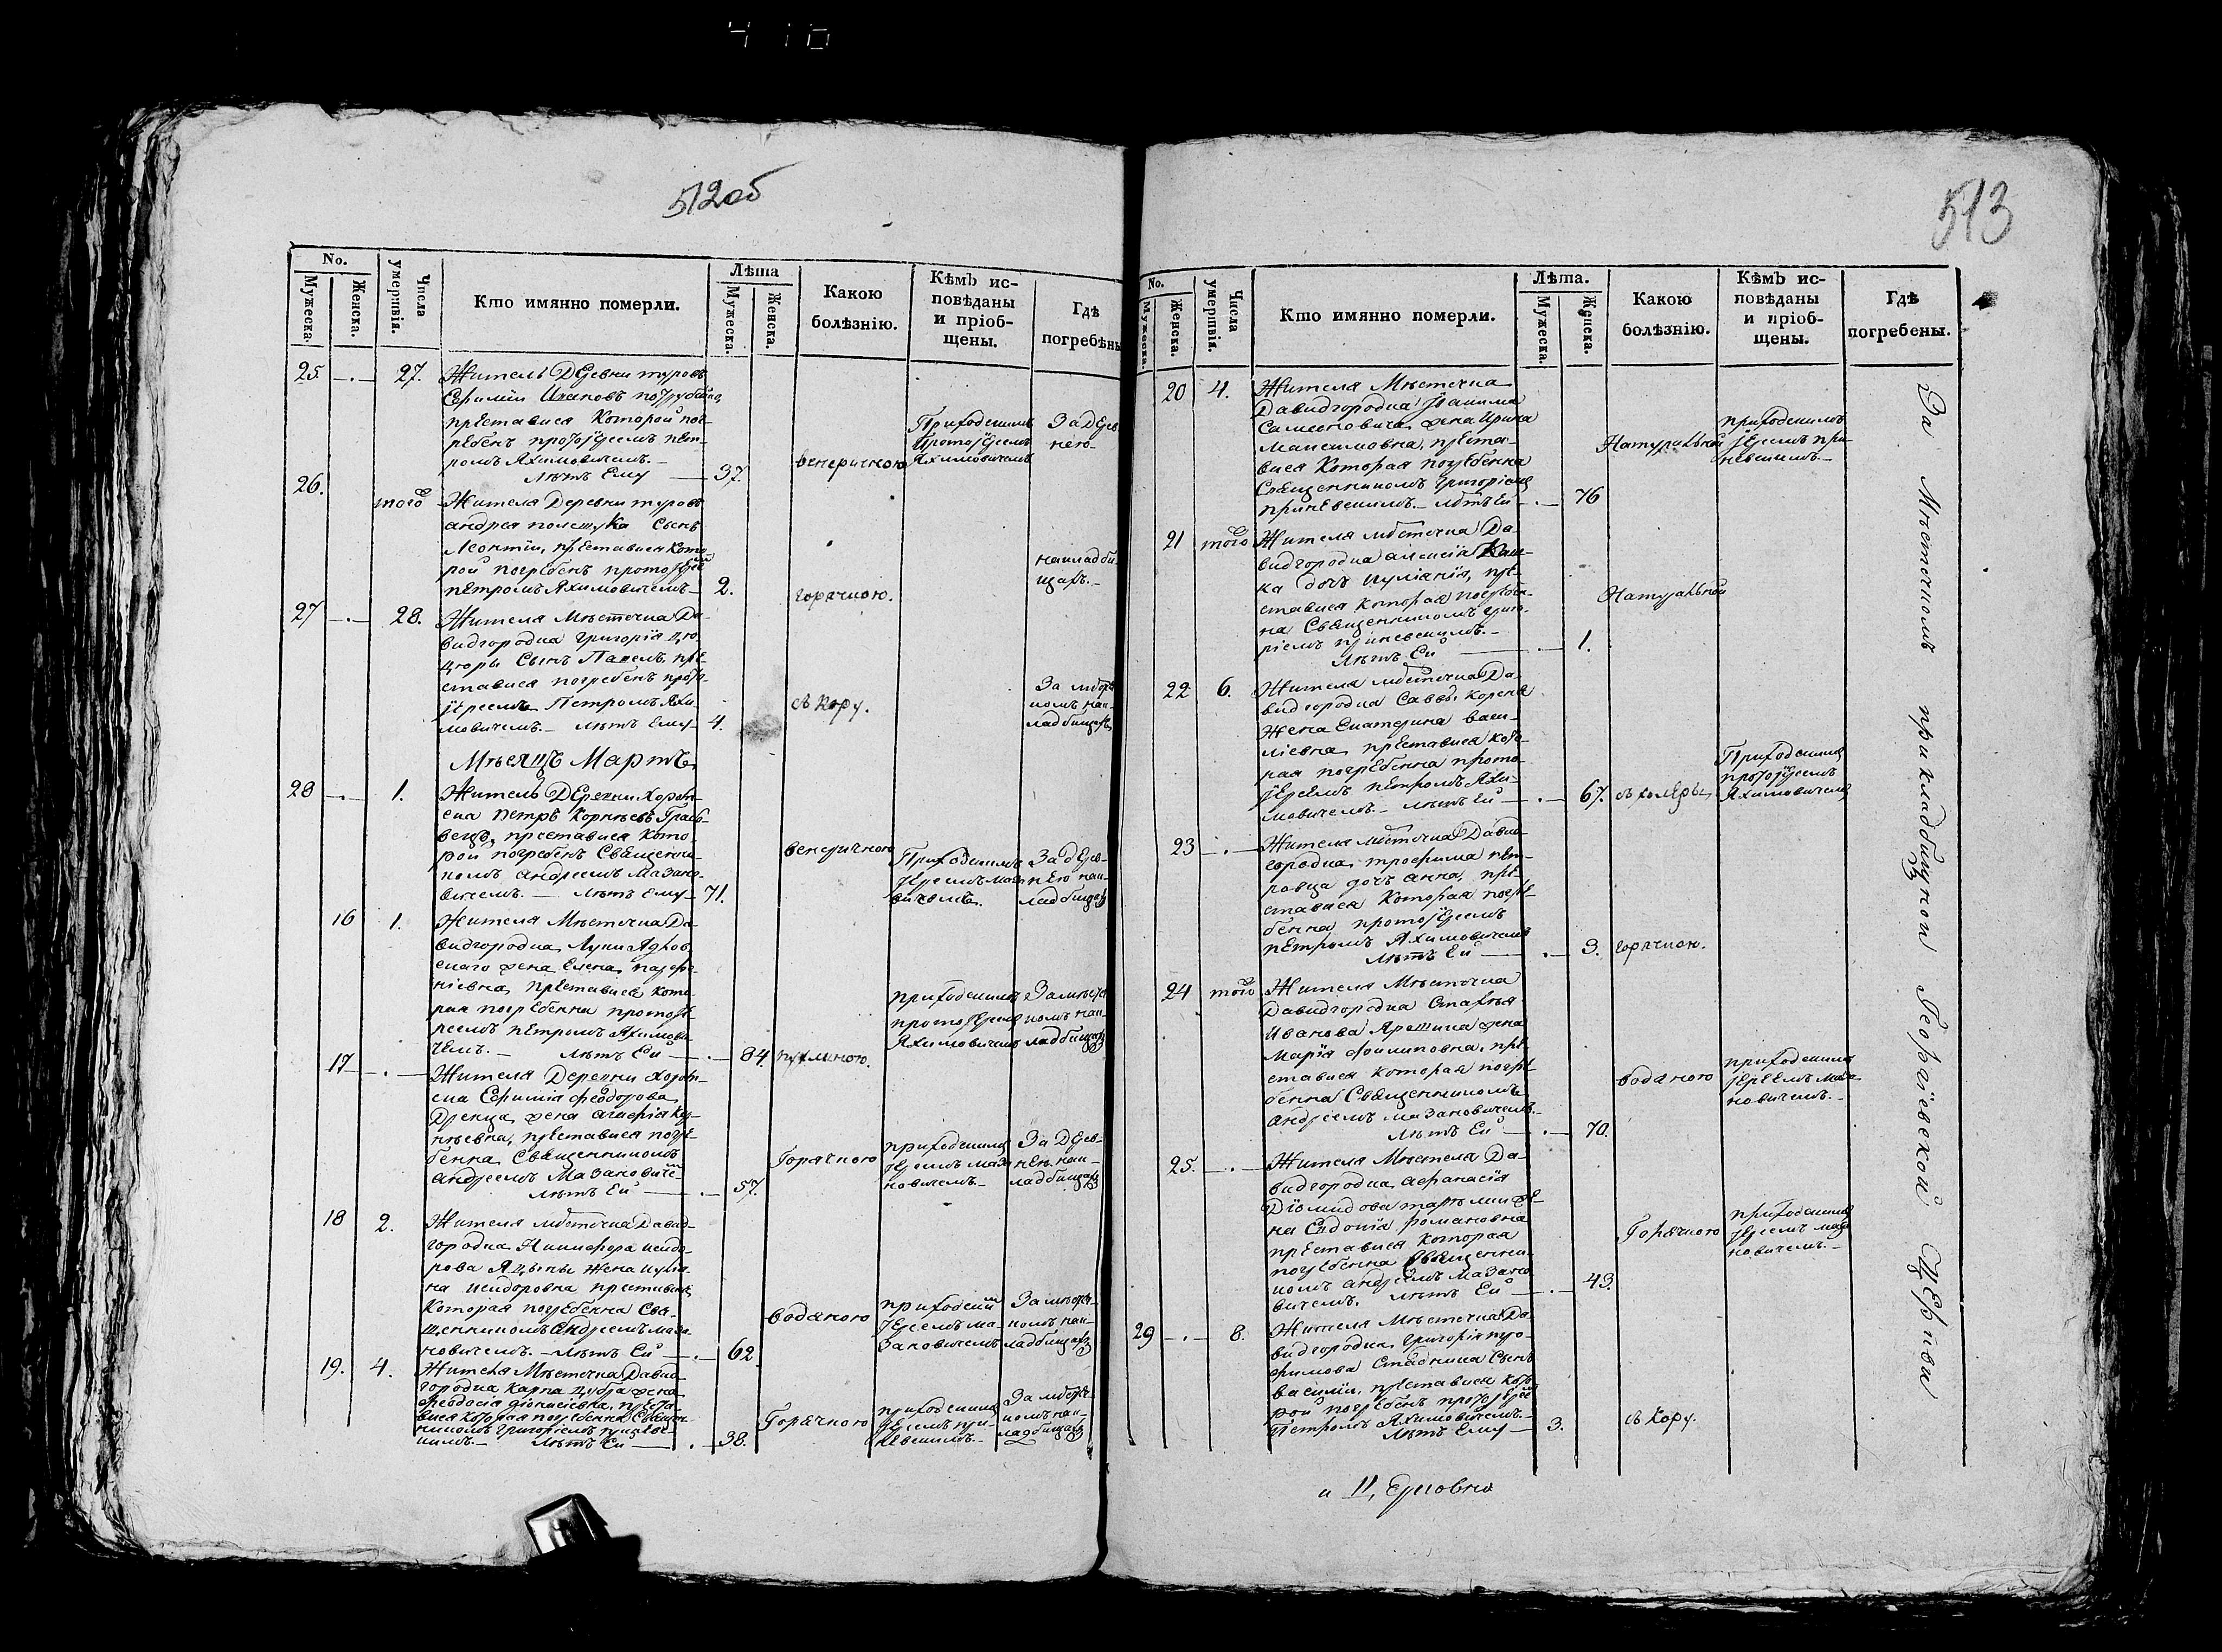 410
512об
No.
Мужеска.
Женска.
Числа умершвія.
Кто имянно померли.
Лѣта
Мужеска.
Женска.
Какою
болѣзнію.
Кѣмъ ис-
повѣданы
и пріоб-
щены.
Гдѣ
погребѣны
25 27. Житель Деревни туровъ
преставися Которой пог-
ребенъ протоіереемъ пет-
ромъ Яхимовичемъ.
Лѣтъ Ему 37.
венеричною
Приходскимъ
Протоіереемъ
Яхимовичемъ
За дерев
нею
26. того Жителя Деревни туровъ
андрея полещука Сынъ
Леонтіи, преставися Кото-
рой погребенъ протоіерее
петромъ Яхимовичемъ 2.
горячкою.
накладби-
щахъ.
27 28. Жителя Мѣстечка Да-
видгородка Григорія
Сынъ Павелъ, пре-
ставися погребенъ прото-
іереемъ Петромъ Яхи-
мовичемъ. Лѣтъ Ему 4.
съ кору.
За мѣстеч
комъ нак-
ладбищахъ
Мѣсяцъ Мартъ
28 1. Житель Деревни Хорот-
ска петръ Корнѣевъ
преставися Кото
рой погребенъ Священни-
комъ андреемъ Мазано-
вичемъ. Лѣтъ Ему 71.
венеричною
Приходскимъ
іереемъ маза
вичемъ.
За дерев-
нею нак-
ладбищахъ
16 1. Жителя Мѣстечка Да-
видгородка, Луки
жена Елена
преставися кото-
рая погребенна протоіе-
реемъ петромъ Яхимови-
чемъ. Лѣтъ Ей 84.
пухлиною.
приходскимъ
протоіереемъ
Яхимовичемъ
За мѣстеч
комъ нак-
ладбищахъ
17 Жителя Деревни Хорот-
ска Ефимія феодорова
жена агафія
преставися погре-
бенна Священникомъ
андреемъ Мазановиче
Лѣтъ Ей 57.
Горячкою
приходскимъ
іереемъ маза
новичемъ
За Дерев-
нею нак-
ладбищахъ
18 2. Жителя мѣстечка Давид-
городка Никифора исидо-
рова Жена
исидоровна преставися
Которая погребенна Свя-
щенникомъ андреемъ маза-
новичемъ. Лѣтъ Ей 62
водяною
приходски
іереемъ ма-
зановичемъ
За мѣстеч-
комъ нак-
ладбищахъ
19. 4. Жителя Мѣстечка Давид-
городка Карпа жена
Феодосія діонисіевна, преста-
вися которая погребенна Священ-
никомъ Григоріемъ
Лѣтъ Ей 38.
Горячкою
приходскимъ
іереемъ при-
невскимъ.
За мѣстеч-
комъ нак-
ладбищахъ
513
No.
Мужеска.
Женска.
Числа умершвія.
Кто имянно померли.
Лѣта.
Мужеска.
Женска.
Какою
болѣзнію.
Кѣмъ ис-
повѣданы
и пріоб-
щены.
Гдѣ
погребены.
20 4. Жителя Мѣстечка
Давидгородка Іоакима
Самсоновича, жена Ирина
Максимовна, преста-
вися Которая погребенна
Священникомъ Григоріемъ
приневскимъ. Лѣтъ Ей 76
Натуральной
приходскимъ
іереемъ при-
невскимъ.
21 того Жителя мѣстечка Да-
видгородка алексія
дочь Иуліанія, пре-
ставися которая погребен-
на Священникомъ григо-
ріемъ приневскимъ.
Лѣтъ Ей 1.
Натуральной
22 6. Жителя мѣстечка Да-
видгородка Саввы корен
Жена Екатерина васи-
ліевна, преставися кото-
рая погребенна прото-
іереемъ петромъ Яхи-
мовичемъ. Лѣтъ Ей 67.
съ холеры
Приходскимъ
протоіереемъ
Яхимовичемъ
23 Жителя мѣстечка Давид-
городка, трофима пет-
ровца дочь анна, пре-
ставися Которая погре-
бенна протоіереемъ
петромъ Яхимовичемъ
Лѣтъ Ей 3.
горячкою.
24 того Жителя Мѣстечка
Давидгородка
Иванова жена
Марія филиповна, пре-
ставися которая погре-
бенна Священникомъ
андреемъ мазановичемъ.
Лѣтъ Ей 70.
водяною
приходскимъ
іереемъ маза-
новичемъ.
25. Жителя Мѣстечка Да-
видгородка, афанасія
Діомидова же-
на Евдокія романовна
преставися которая
погребенна Священни-
комъ андреемъ мазано
вичемъ. Лѣтъ Ей 43.
Горячкою
приходскимъ
іереемъ маза
новичемъ.
29 8. Жителя Мѣстечка Да-
видгородка, Григорія тро-
фимова Сынъ
василіи, преставися кото
рой погребенъ протоіерее
Петромъ Яхимовичемъ.
Лѣтъ Ему 3.
съ кору.
За Мѣстечкомъ при кладбищной Георгіевской Церкви